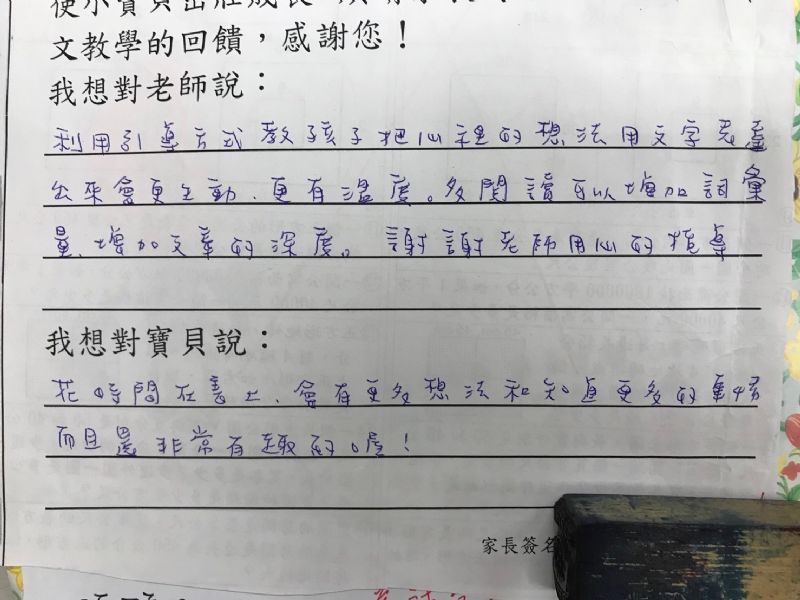 文教學的回饋，感謝您！
我想對老師說：
利用引導方式教孩子把心裡的想法用文字表達
出來會更生動、更有溫度。多閱讀可以增加詞彙
量、增加文章的深度。謝謝老師用心的指導
我想對寶貝說：
花時間在書上、會有更多想法和知道更多的事情
而且還非常有趣的喔！
家長簽名